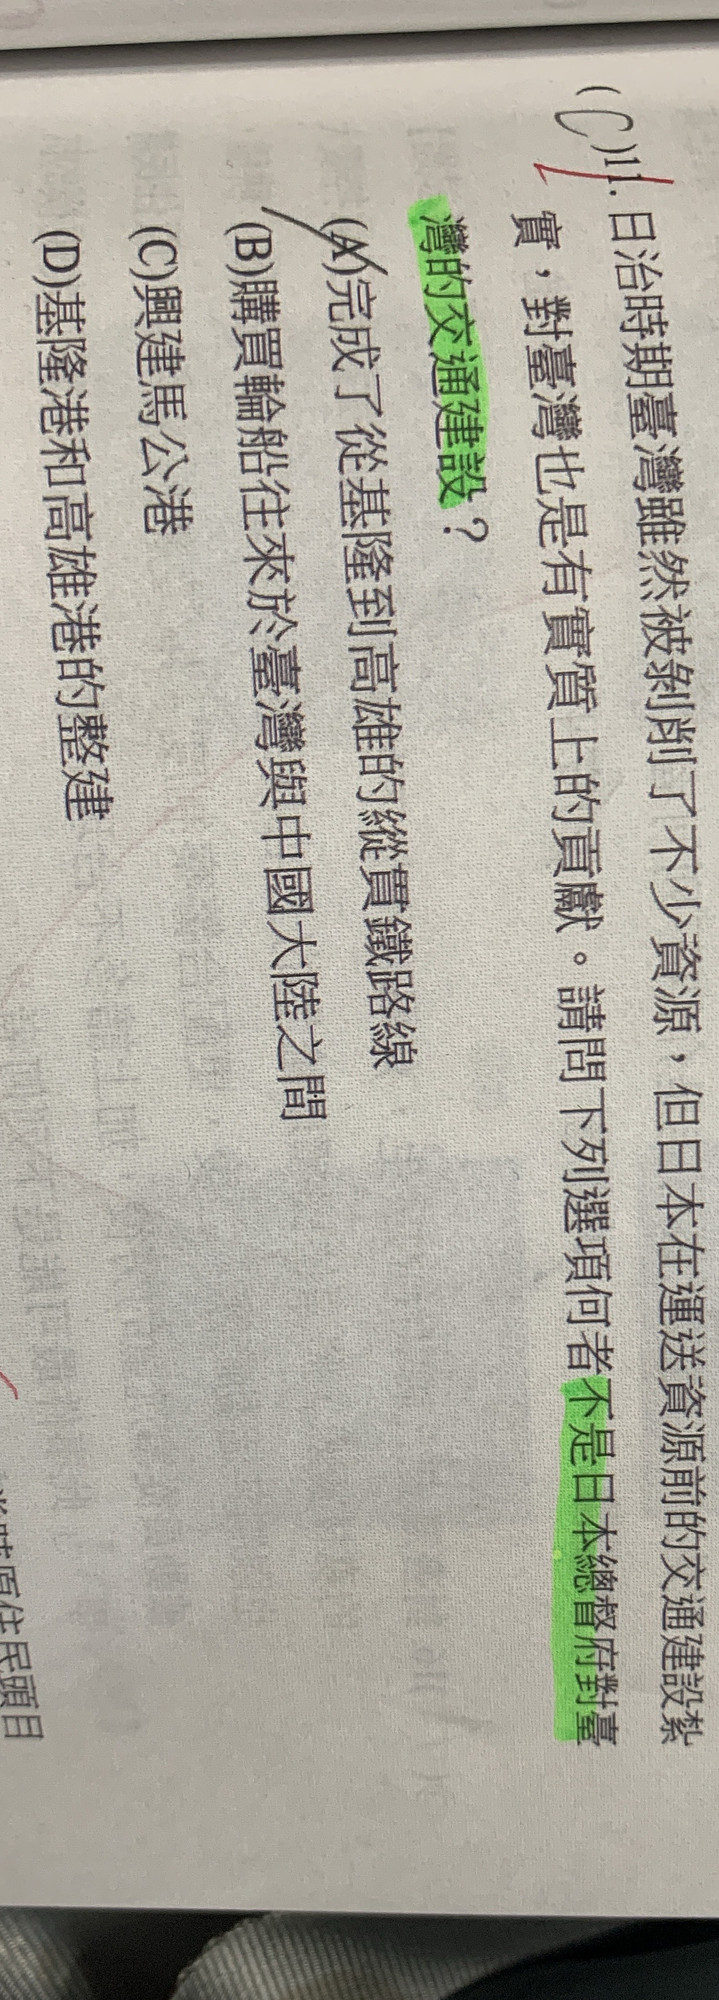 (C)11.日治時期臺灣雖然被剝削了不少資源，但日本在運送資源前的交通建設紮
實，對臺灣也是有實質上的貢獻。請問下列選項何者不是日本總督府對臺
灣的交通建設？
(A)完成了從基隆到高雄的縱貫鐵路線
(B)購買輪船往來於臺灣與中國大陸之間
(C)興建馬公港
(D)基隆港和高雄港的整建
當時原住民頭目